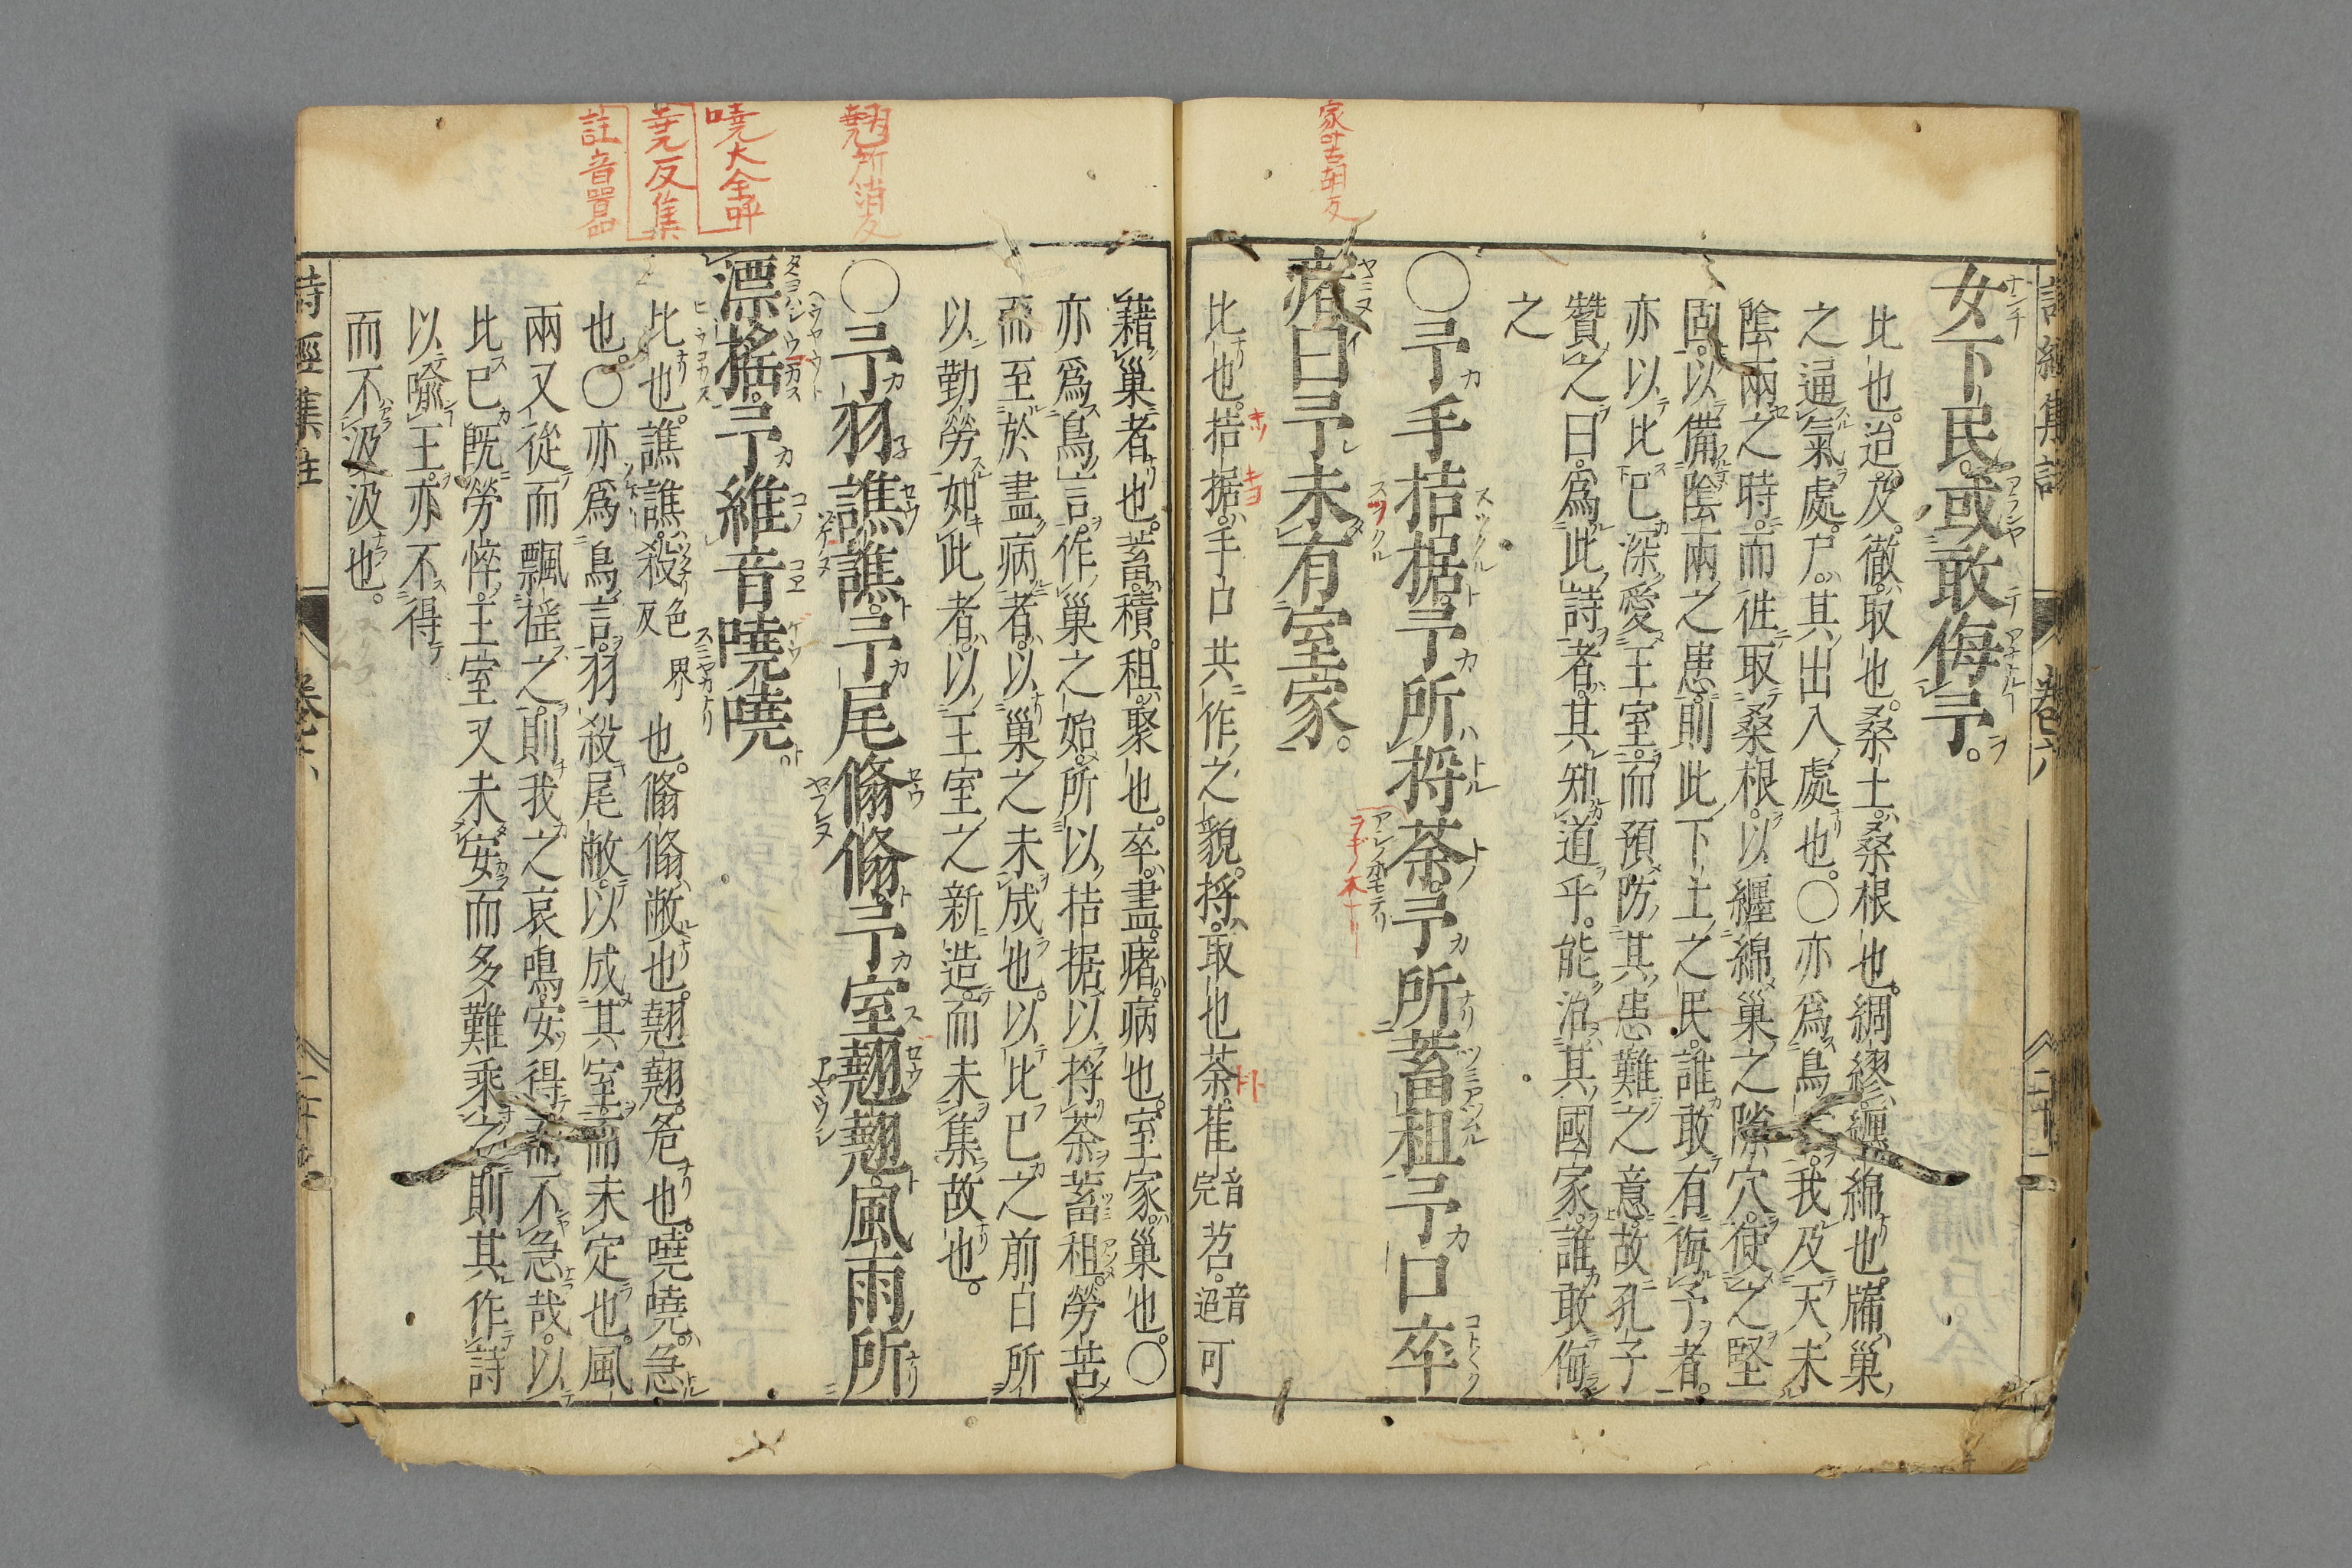 女下民。或敢侮予。
比也。迨。及。徹。取也。桑土。桑根也。綢繆。纏綿也。牖。巢
之通氣處。戸。其出入處也。〇亦爲鳥言。我及天未
陰雨之時。而徃取桑根。以纏綿巢之隙穴。使之堅
固。以備陰雨之患。則此下土之民。誰敢有侮予者。
亦以比已深愛王室。而預防其患難之意。故孔子
贊之曰。爲此詩者。其知道乎。能治其國家。誰敢侮
之
〇予手拮据。予所捋荼。予所蓄租。予口卒
瘏。曰予未有室家。
比也。拮据。手口共作之貌。捋。取也。荼。萑音完苕。音迢可
藉巢者也。蓄。積。租。聚也。卒。盡。瘏。病也。室家。巢也。〇
亦爲鳥言。作巢之始。所以拮据以捋荼蓄租。勞苦
而至於盡病者。以巢之未成也。以比已之前日所
以勤勞如此者。以王室之新造。而未集故也。
〇予羽譙譙。予尾翛翛。予室翹翹。風雨所
漂搖。予維音嘵嘵。
比也。譙譙。殺色界反也。翛翛。敝也。翹翹。危也。嘵嘵。急
也。〇亦爲鳥言。羽殺尾敝。以成其室。而未定也。風
雨又從而飄搖之。則我之哀鳴。安得而不急哉。以
比已既勞悴。王室又未安。而多難乘之。則其作詩
以喩王。亦不得
而不汲汲也。
詩經集註
卷六
家叶古胡反
翹所消反
嘵大全呼
堯反集
註音囂